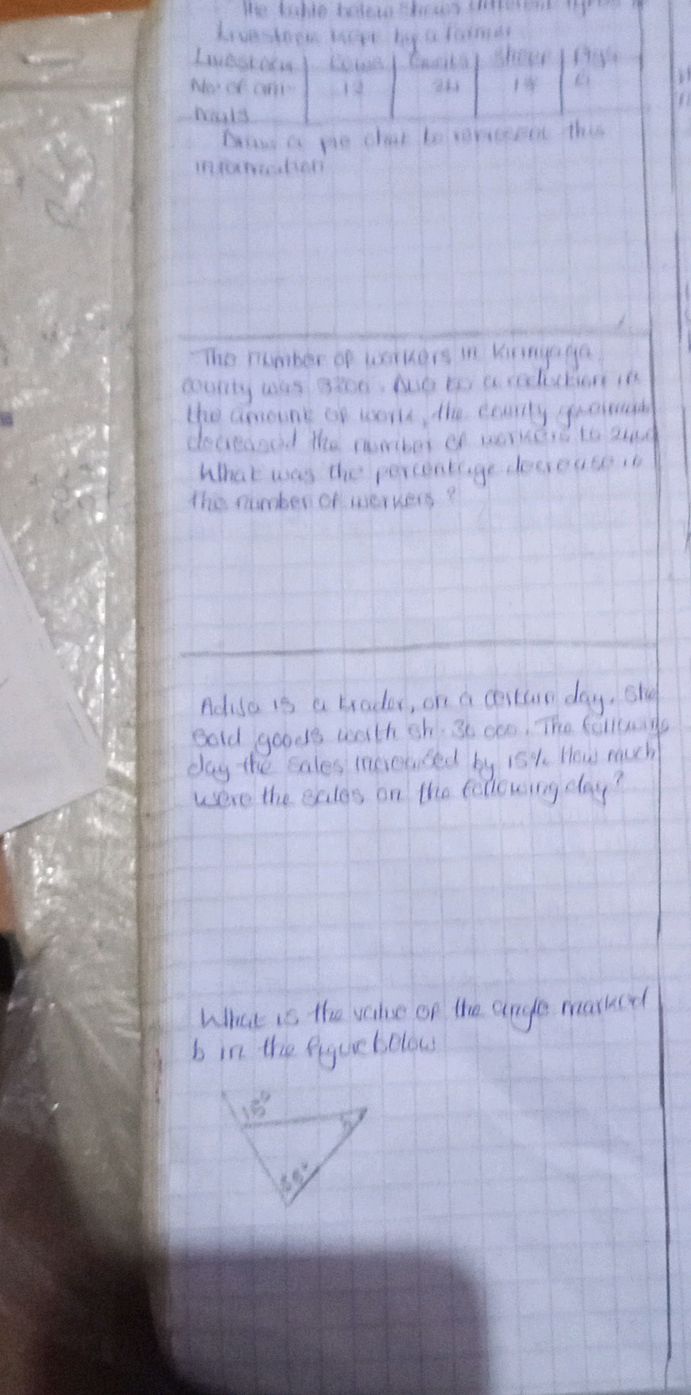 The table below shows different types
Livestock kept by a farmer
Livestock Cows Goats Sheep Pigs
No. of ani- 12 24 18 6
mals
Draw a pie chart to represent this
information
The number of workers in Kirinyaga
county was Due to a reduction in
the amount of work, the county
decreased the number of workers to
What was the percentage decrease in
the number of workers?
Adisa is a trader, on a certain day, she
sold goods worth sh. 36 000. The following
day the sales increased by 15%. How much
were the sales on the following day?
What is the value of the angle marked
b in the figure below
b